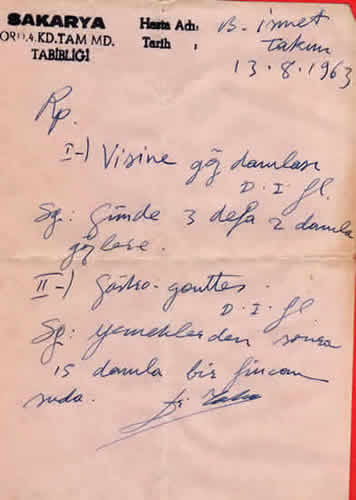 SAKARYA
ORD.4.KD.TAM MD.
TABİBLİĞİ
Hasta Adı: B. İsmet
Takım
Tarih :
13.8.1963
Rp.
I-) Visine göz damlası
D.I.fl.
Sg.: Günde 3 defa 2 damla
gözlere.
II-) Gastro-gouttes.
D.I.fl
Sg: yemeklerden sonra
15 damla bir fincan
suda.